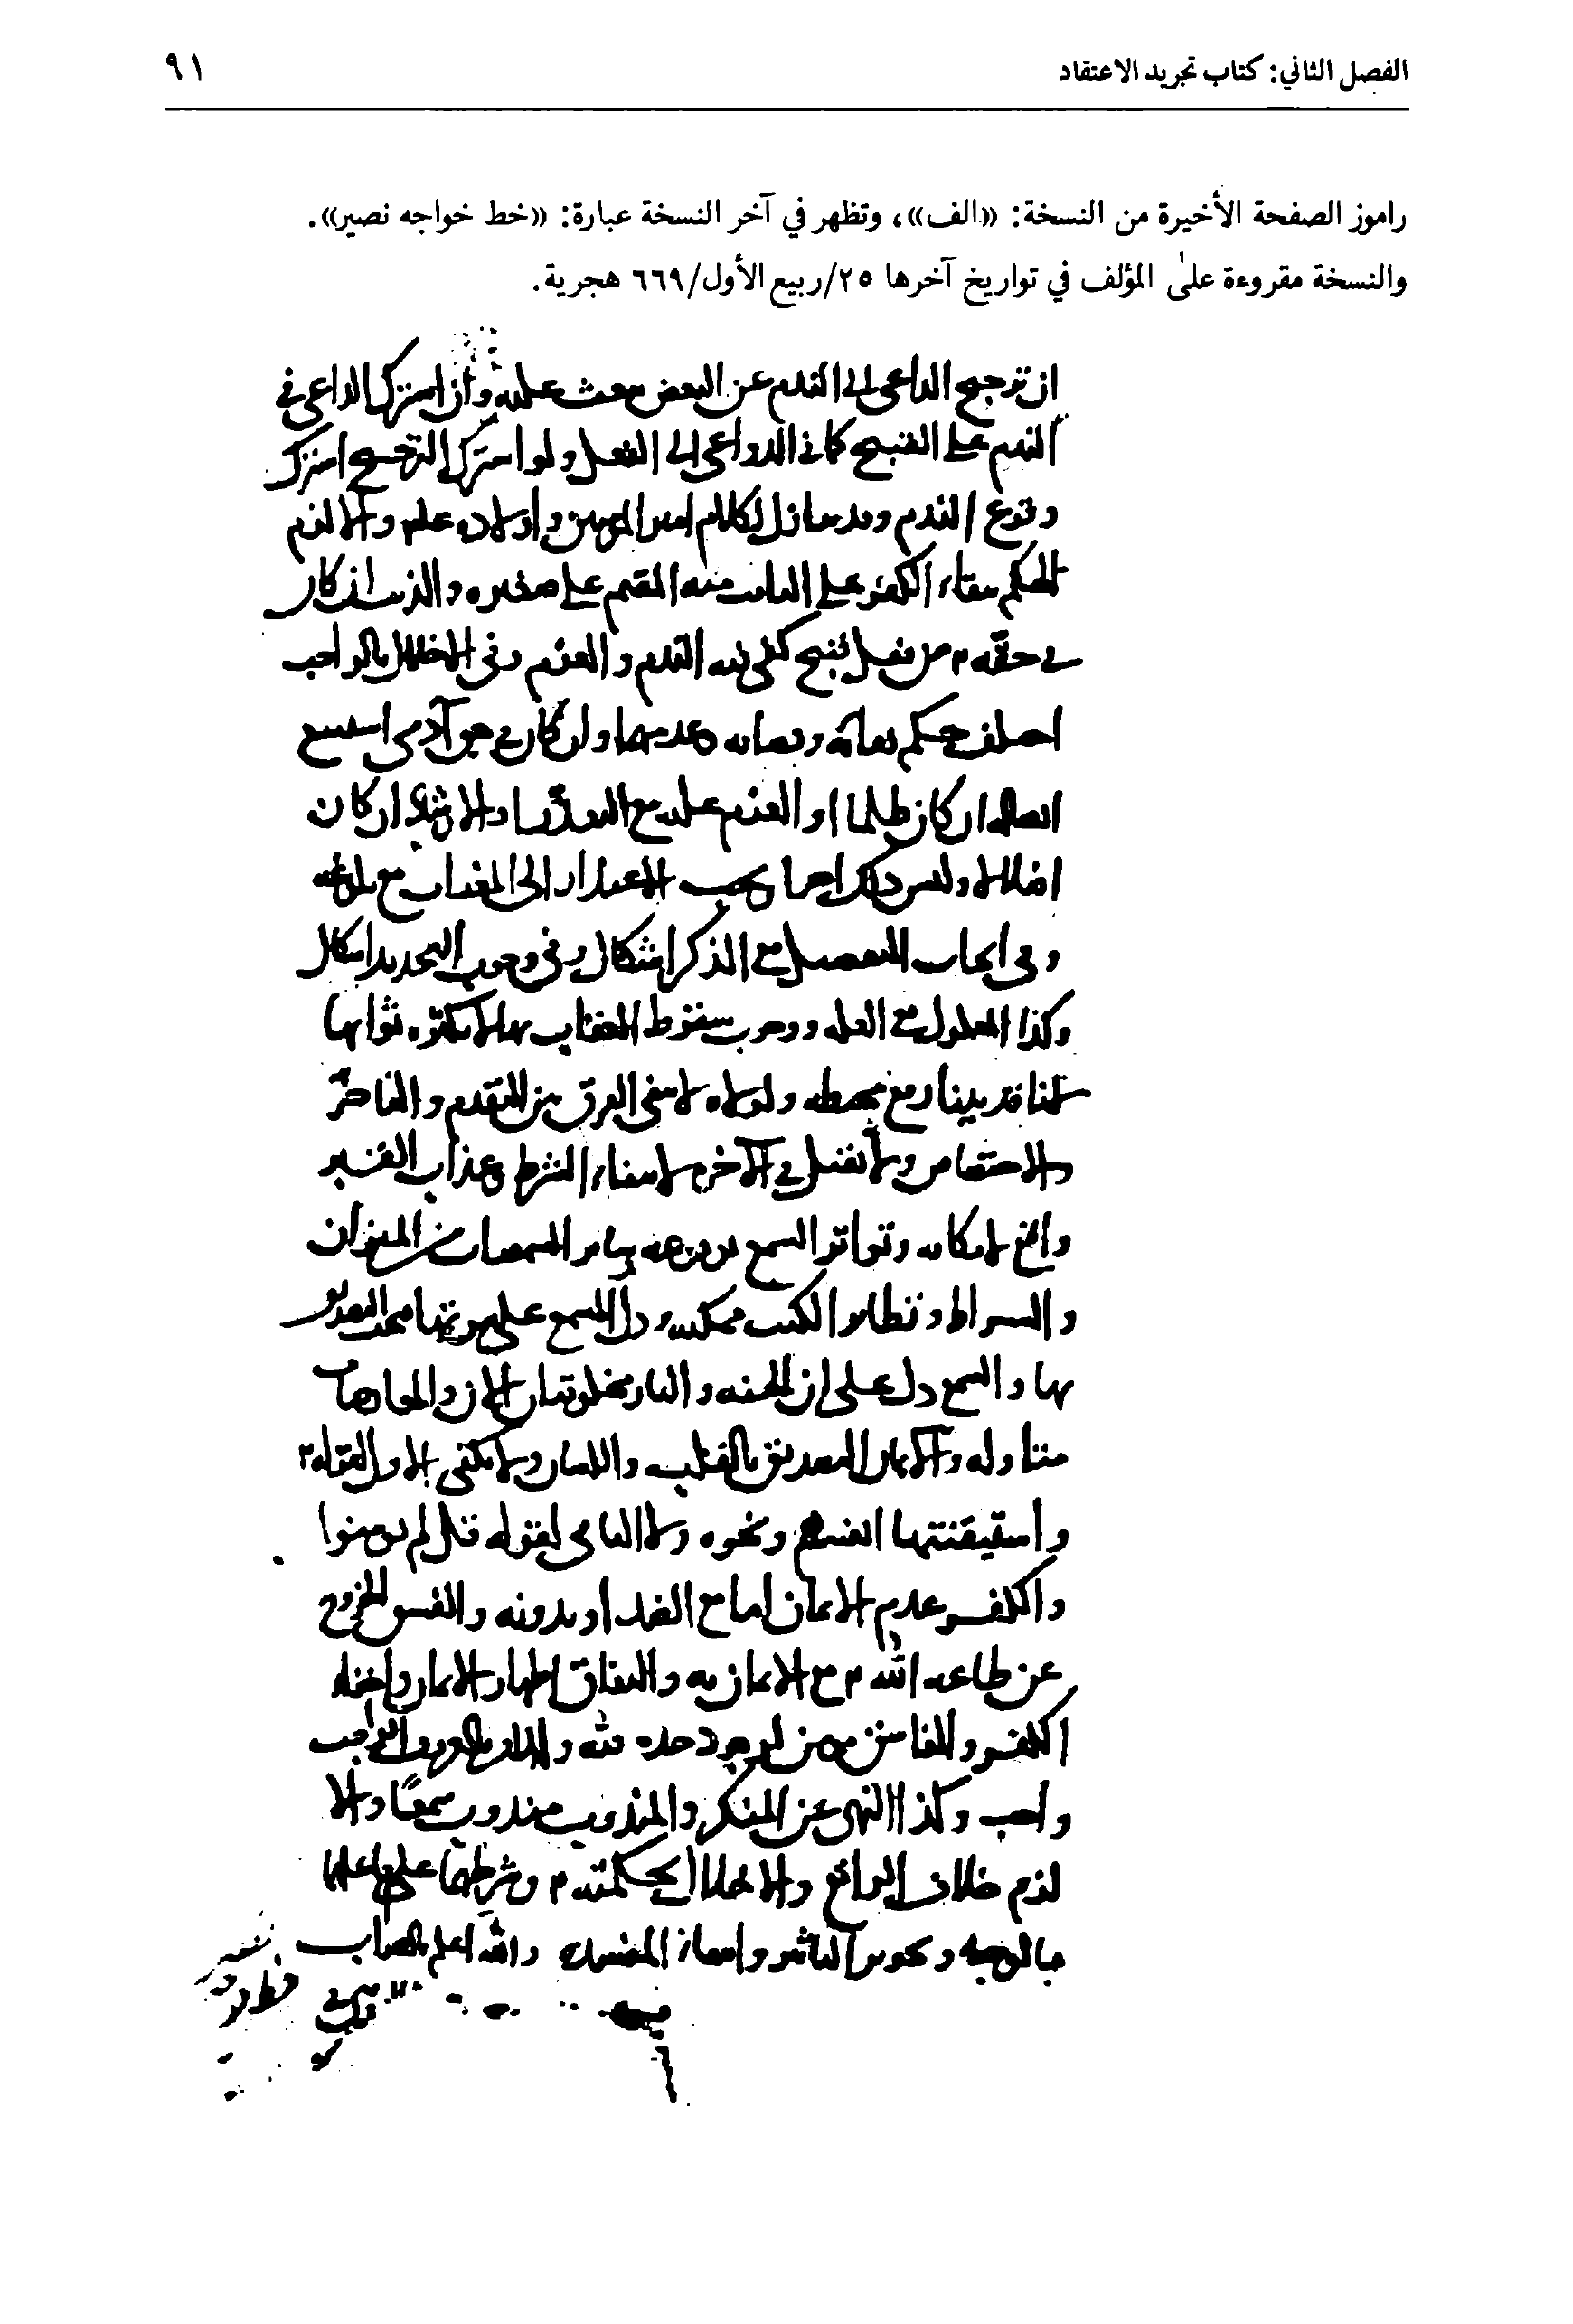 الفصل الثاني: كتاب تجريد الاعتقاد ٩١
راموز الصفحة الأخيرة من النسخة: «الف»، وتظهر في آخر النسخة عبارة: «خط خواجه نصير».
والنسخة مقروءة علىٰ المؤلف في تواريخ آخرها ٢٥/ربيع الأول/٦٦٩ هجرية.
ان ترجيح الداعي الى الندم عن البعض يبعث عليه وان اشترك الداعي في
الندم على القبيح كما في الدواعي الى الفعل ولو اشترك الترجيح اشترك
وقوع الندم وبه يتاول كلام امير المومنين واولاده علم والا لزم
الحكم ببقاء الكفر على التايب منه المقيم على صغيره والذنب ان كان
في حقه من فعل قبيح كفى فيه الندم والعزم وفي الاخلال بالواجب
اختلف حكم بقائه وقضائه وعدمهما وان كان في حق آدمي استتبع
ايصاله ان كان ظلما او العزم عليه مع التعذر او الارشاد ان كان
اضلالا وليس ذلك اجزا ويجب الاعتذار الى المغتاب مع بلوغه
وفي ايجاب التفصيل مع الذكر اشكال وفي وجوب التجديد اشكال
وكذا المعلول مع العله ووجوب سقوط العقاب بها لا بكثره ثوابها
ولولاه لا ينتفي الفرق بين التقدم والتاخر
والاختصاص ولا تقبل في الآخره لانتفاء الشرط وعذاب القبر
واقع لامكانه وتواتر السمع بوقوعه وساير السمعيات من الميزان
والصراط وتطاير الكتب ممكنه دل السمع على ثبوتها فيجب التصديق
بها والسمع دل على ان الجنه والنار مخلوقتان الان والمعارضات
متاوله والايمان التصديق بالقلب واللسان ولا يكفي الاول لقوله
واستيقنتها انفسهم ونحوه ولا الثاني لقوله قل لم تومنوا
والكفر عدم الايمان اما مع الضد او بدونه والفسق الخروج
عن طاعه الله مع الايمان به والنفاق اظهار الايمان واخفاء
الكفر والفاسق مومن لوجود حده فيه والامر بالمعروف الواجب
واجب وكذا النهي عن المنكر والمندوب مندوب سمعًا والا
لزم خلاف الواقع والاخلال بحكمته وشرطهما علم فاعلهما
بالوجه وتجويز التاثير وانتفاء المفسده والله اعلم بالصواب